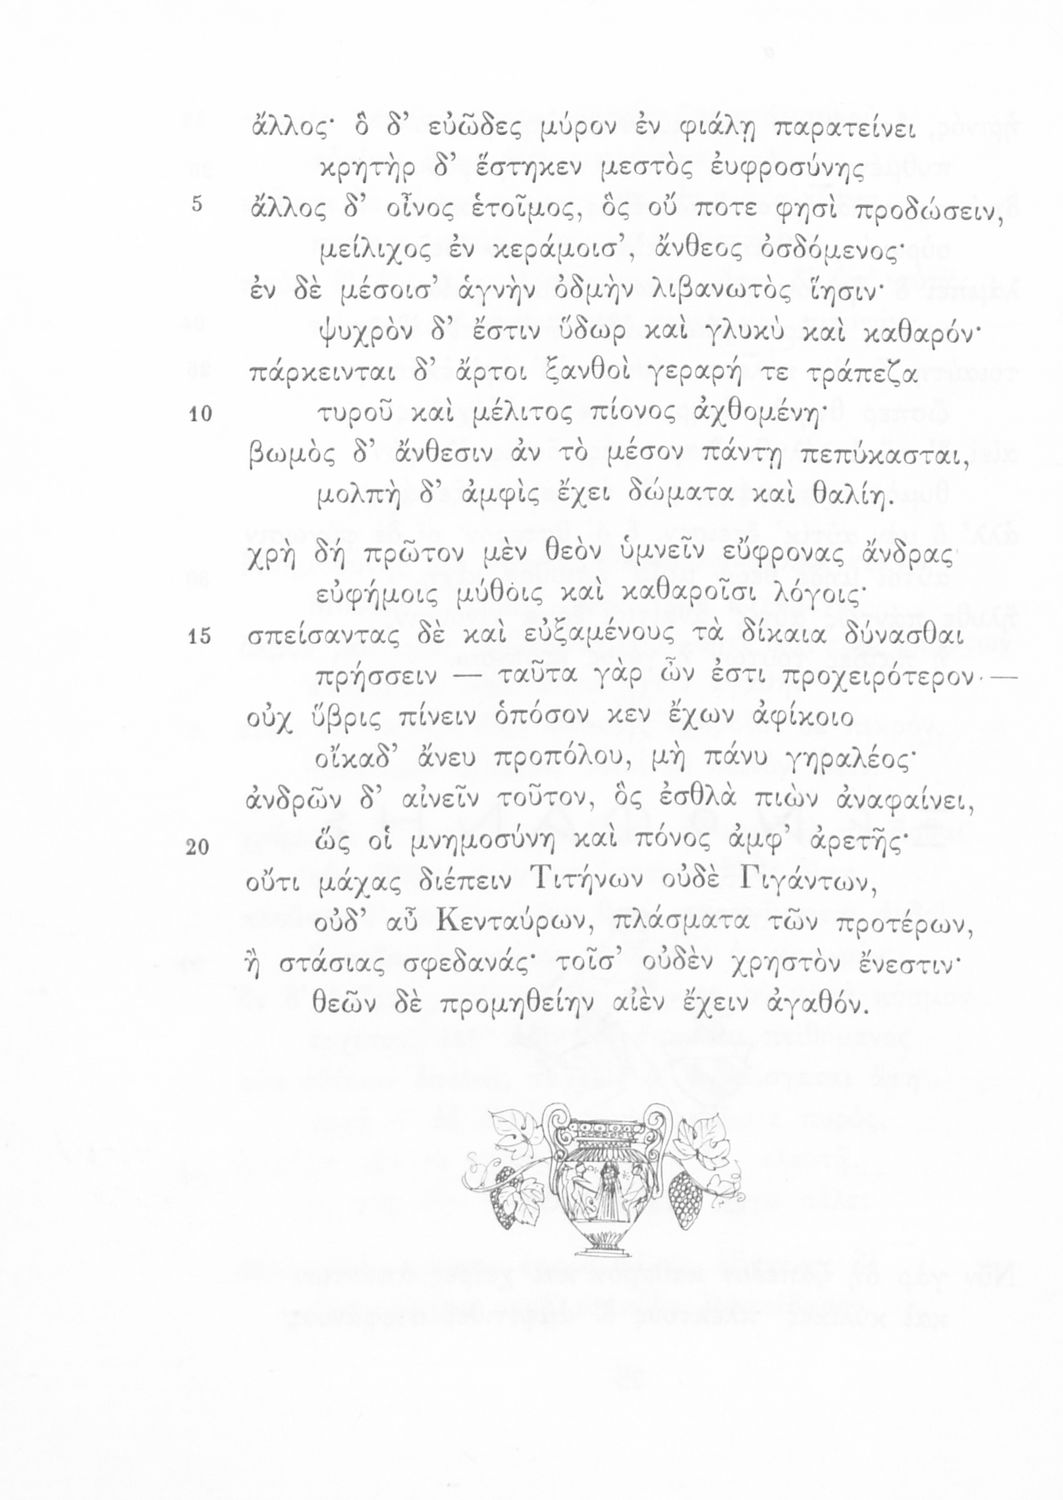 ἄλλος· ὃ δ’ εὐῶδες μύρον ἐν φιάλῃ παρατείνει
κρητὴρ δ’ ἕστηκεν μεστὸς ἐυφροσύνης
5 ἄλλος δ’ οἶνος ἑτοῖμος, ὃς οὔ ποτε φησὶ προδώσειν,
μείλιχος ἐν κεράμοισ’, ἄνθεος ὀσδόμενος·
ἐν δὲ μέσοισ’ ἁγνὴν ὀδμὴν λιβανωτὸς ἵησιν·
ψυχρὸν δ’ ἔστιν ὕδωρ καὶ γλυκὺ καὶ καθαρόν·
πάρκεινται δ’ ἄρτοι ξανθοὶ γεραρή τε τράπεζα
10 τυροῦ καὶ μέλιτος πίονος ἀχθομένη·
βωμὸς δ’ ἄνθεσιν ἀν τὸ μέσον πάντῃ πεπύκασται,
μολπὴ δ’ ἀμφὶς ἔχει δώματα καὶ θαλίη.
χρὴ δὴ πρῶτον μὲν θεὸν ὑμνεῖν εὔφρονας ἄνδρας
εὐφήμοις μύθοις καὶ καθαροῖσι λόγοις·
15 σπείσαντας δὲ καὶ εὐξαμένους τὰ δίκαια δύνασθαι
πρήσσειν — ταῦτα γὰρ ὦν ἐστι προχειρότερον· —
οὐχ ὕβρις πίνειν ὁπόσον κεν ἔχων ἀφίκοιο
οἴκαδ’ ἄνευ προπόλου, μὴ πάνυ γηραλέος·
ἀνδρῶν δ’ αἰνεῖν τοῦτον, ὃς ἐσθλὰ πιὼν ἀναφαίνει,
20 ὥς οἱ μνημοσύνη καὶ πόνος ἀμφ’ ἀρετῆς·
οὔτι μάχας διέπειν Τιτήνων οὐδὲ Γιγάντων,
οὐδ’ αὖ Κενταύρων, πλάσματα τῶν προτέρων,
ἢ στάσιας σφεδανάς· τοῖσ’ οὐδὲν χρηστὸν ἔνεστιν·
θεῶν δὲ προμηθείην αἰὲν ἔχειν ἀγαθόν.